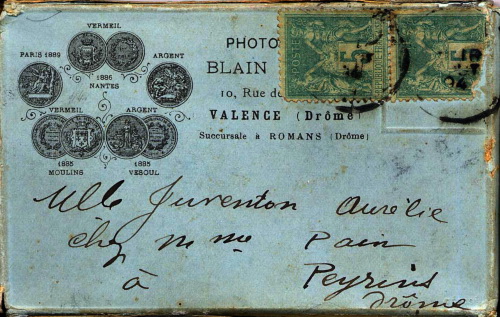 VERMEIL
PARIS 1889
ARGENT
1886
NANTES
VERMEIL
ARGENT
1885
MOULINS
1885
VESOUL
PHOTO
BLAIN
10, Rue de
VALENCE (Drôme)
Succursale à ROMANS (Drôme)
5
5
Mlle Juventon Aurélie
chez Mme Pain
à Peyrins
Drôme